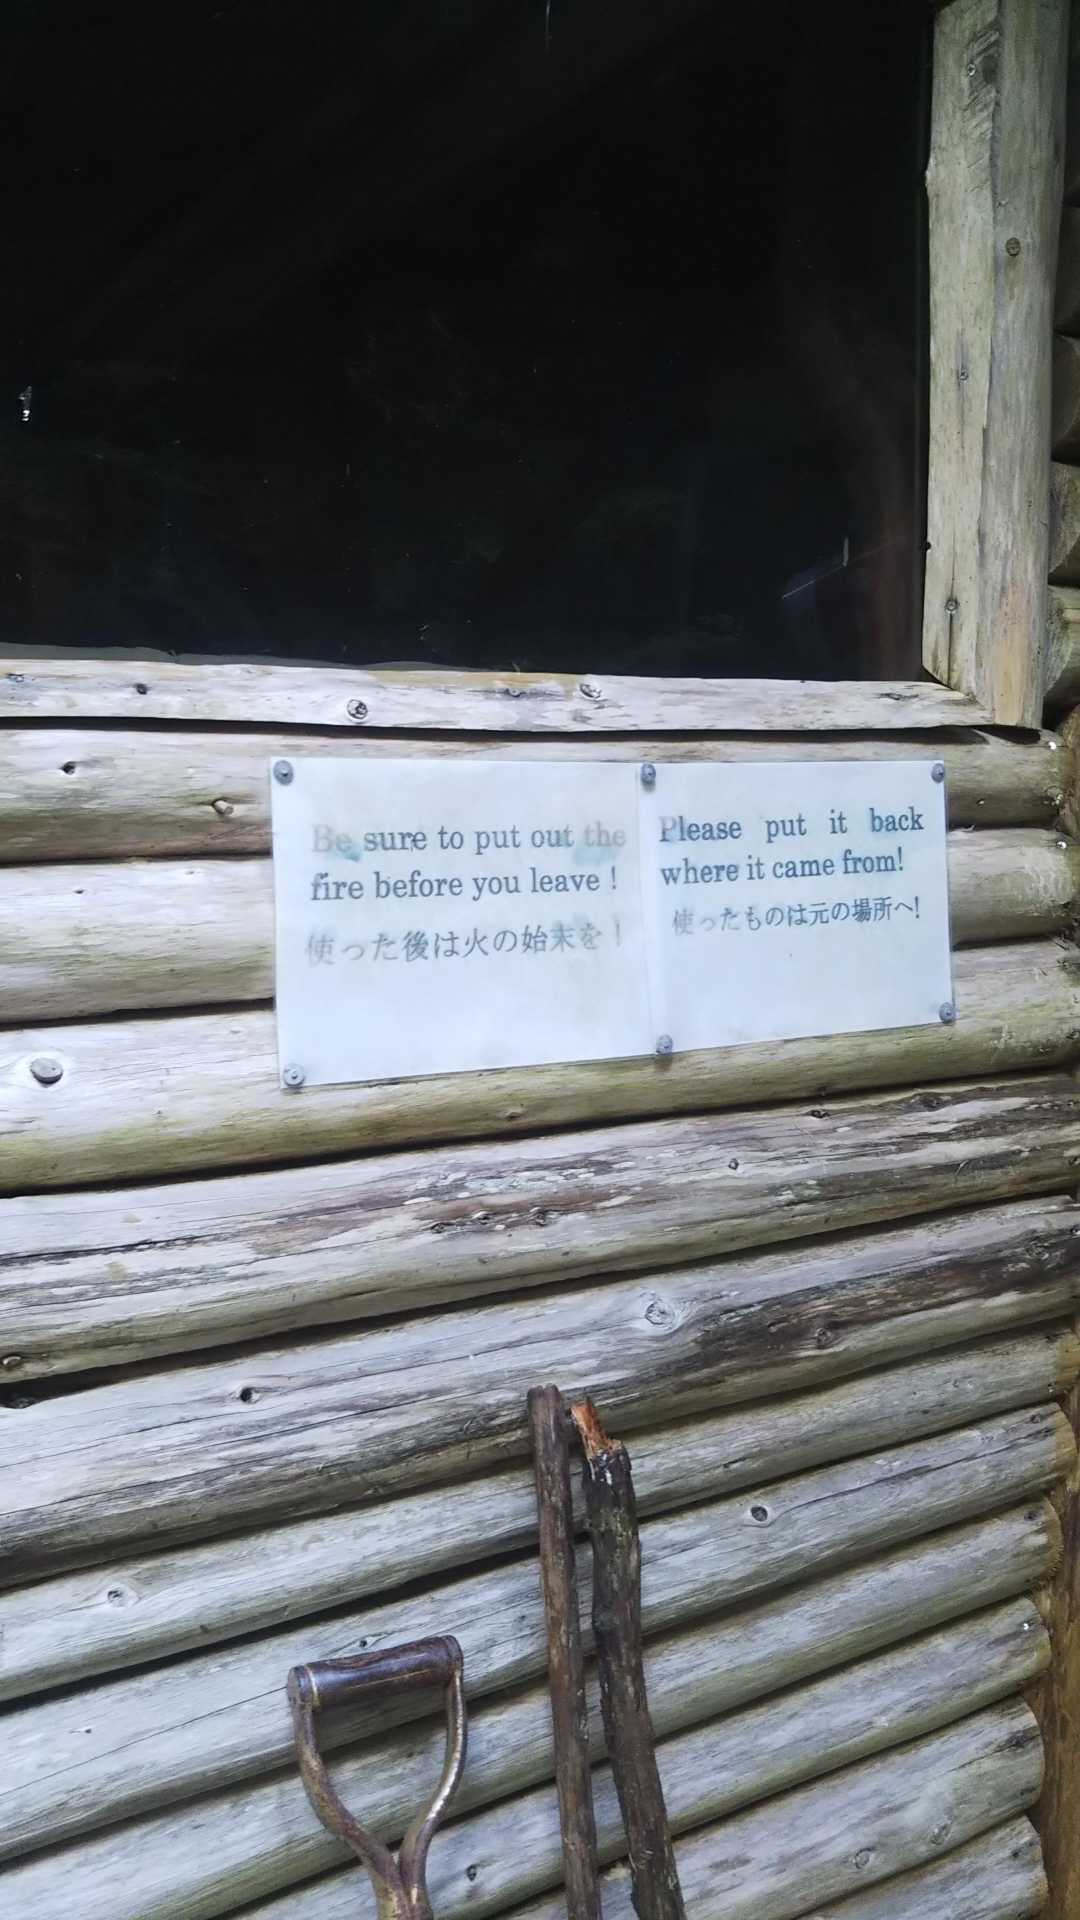 Be sure to put out the
fire before you leave !
使った後は火の始末を！
Please put it back
where it came from!
使ったものは元の場所へ!